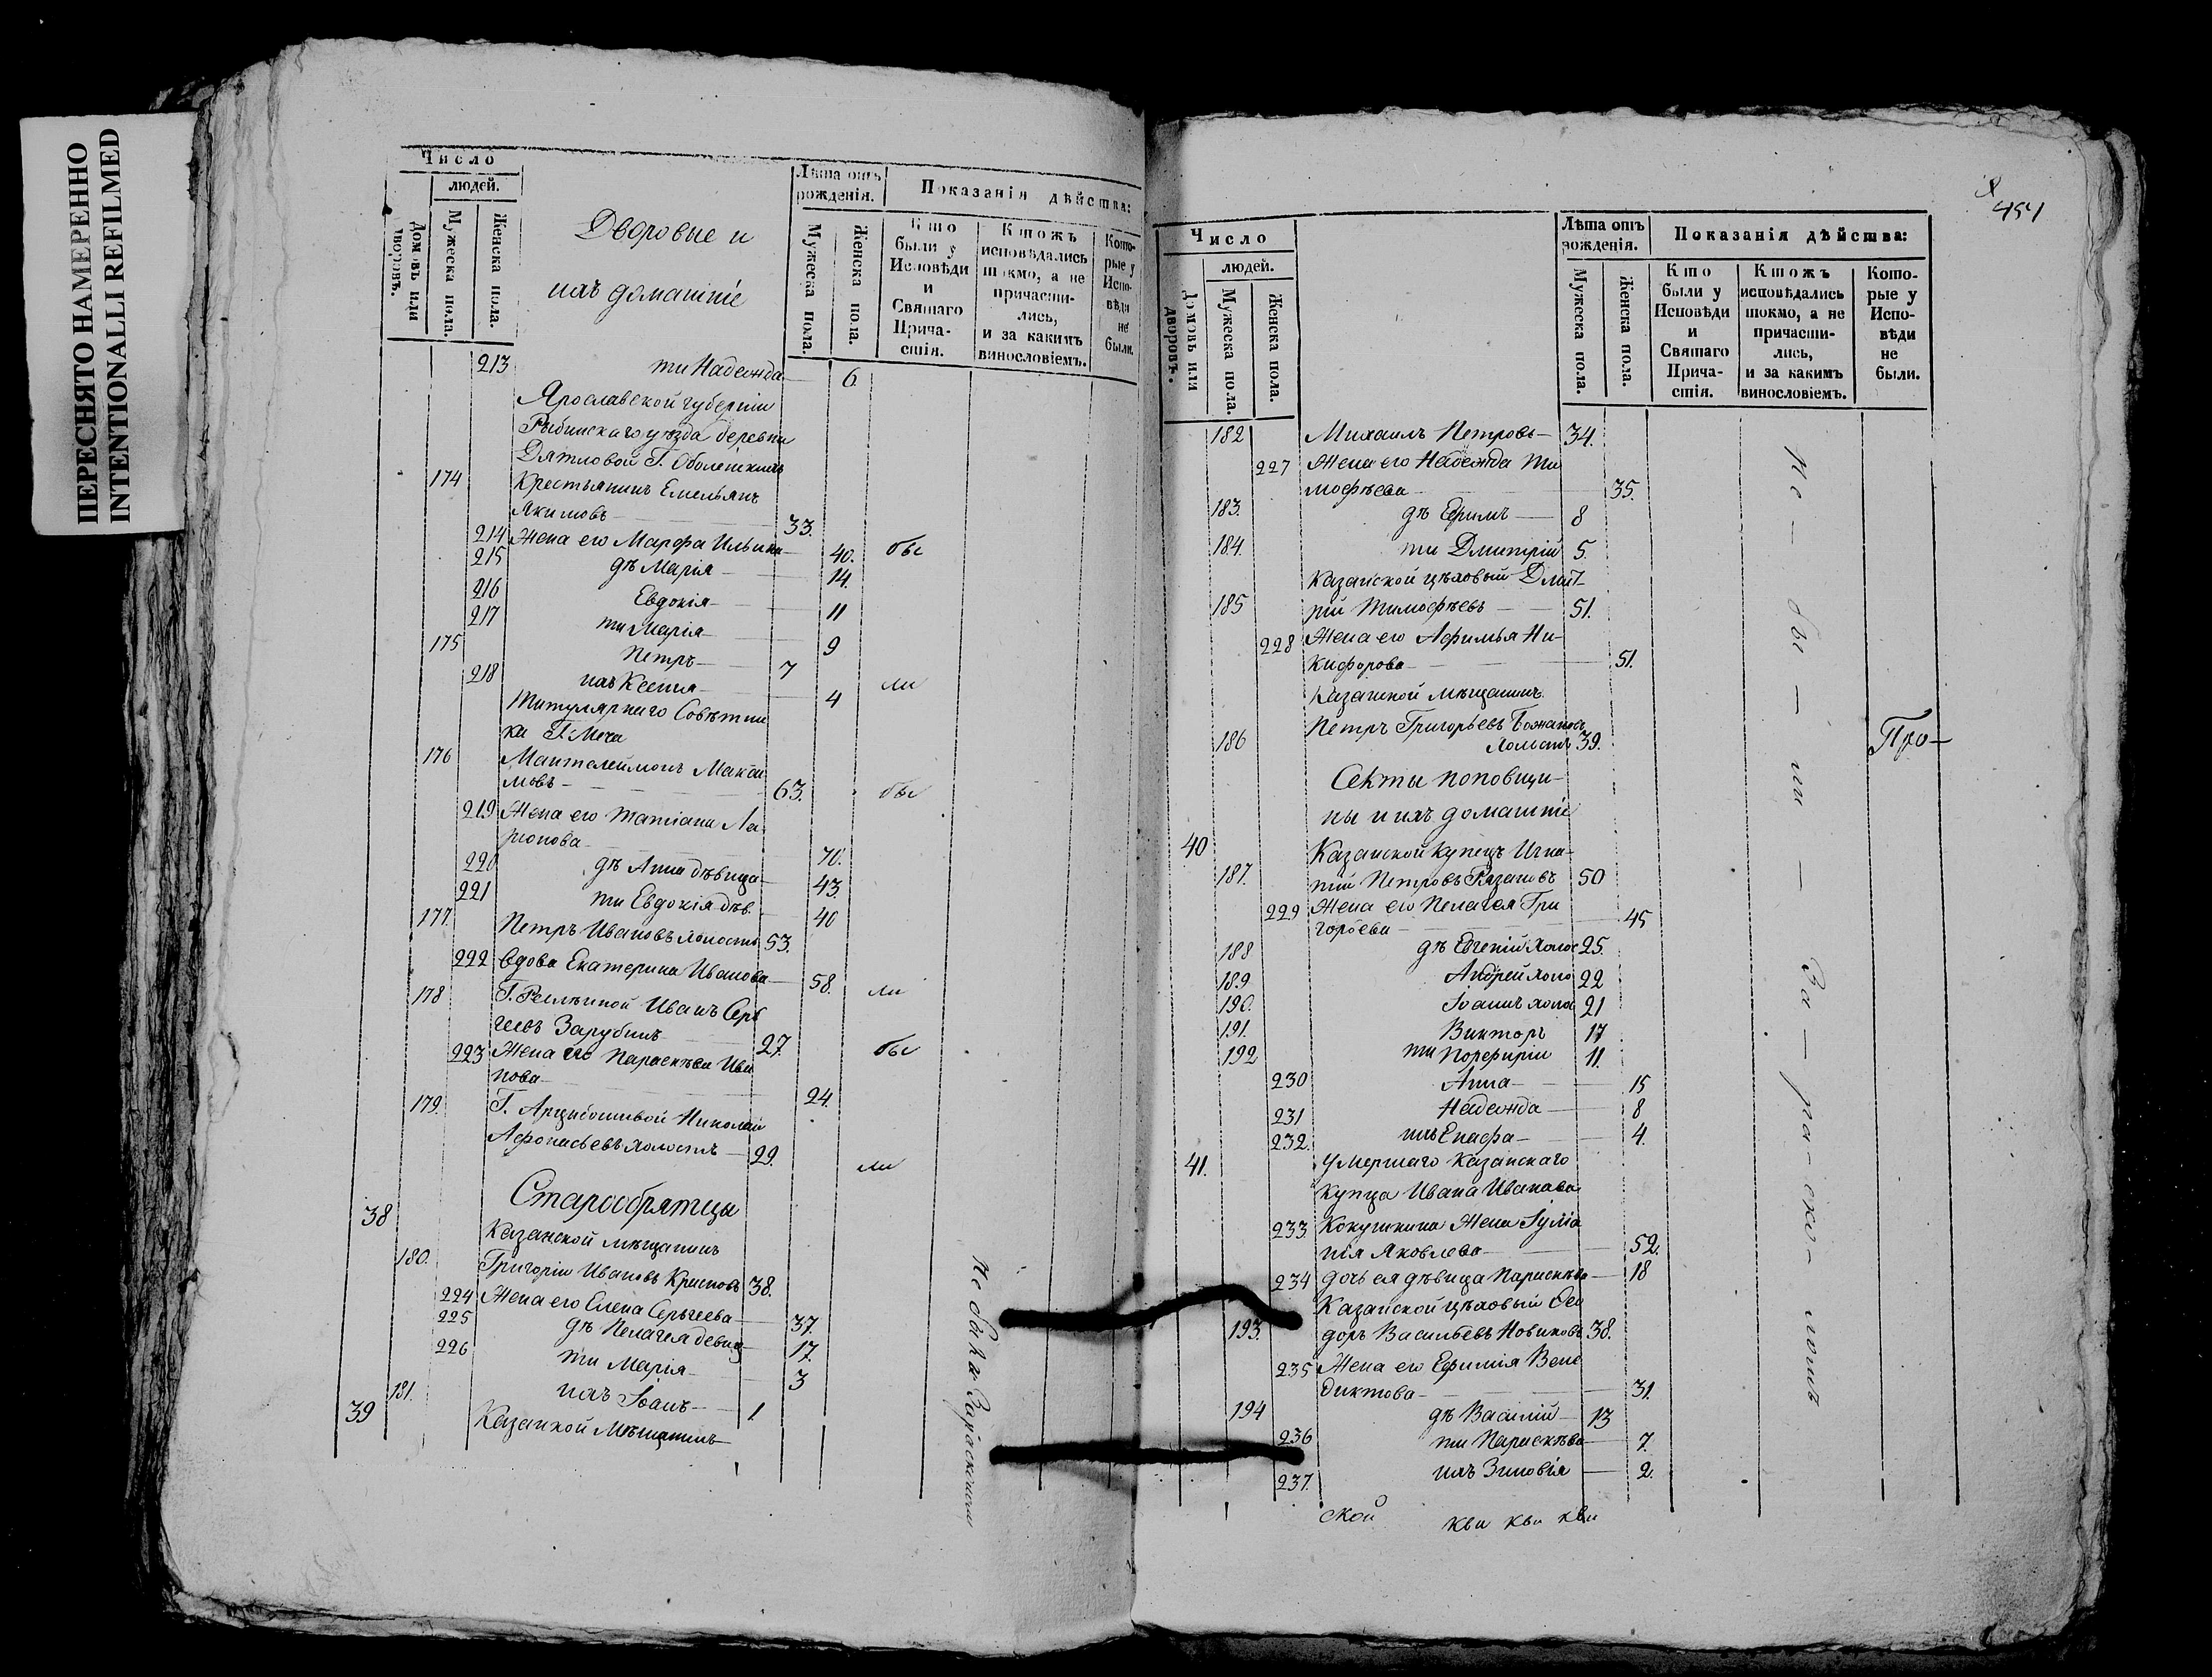 ПЕРЕСНЯТО НАМЕРЕННО
INTENTIONALLI REFILMED
Число
людей.
Домовъ или дворовъ.
Мужеска пола.
Женска пола.
Дворовые и
ихъ домашніе
Лѣта отъ рожденія.
Мужеска пола.
Женска пола.
Показанія дѣйства:
Кто были у Исповѣди и Святаго Прича- стія.
Ктожъ исповѣдались токмо, а не причасти- лись, и за какимъ винословіемъ.
Кото- рые у Испо- вѣди не были.
213 ти Надежда 6
Ярославской губерніи
Рыбинскаго уѣзда деревни
Дятловой Г.
174 Крестьянинъ Емельянъ
Якимовъ 33.
214 Жена его Марфа Ильина 40. бы
215 дѣ Марія 14.
216 Евдокія 11
217 ти Марія 9
175 Петръ 7
218 ихъ Ксенія 4 ли
Титулярнаго Совѣтни
ка Г.
176 Пантелеймонъ Макси
мовъ 63. бы
219 Жена его Татіана Ла
ріонова 70.
220 дѣ Анна дѣвица 43.
221 ти Евдокія дѣв. 40
177. Петръ Ивановъ холостъ 53.
222 Вдова Екатерина Иванова 58. ли
178 Г. Иванъ Сер
геевъ Зарубинъ 27. бы
223 Жена его Параскѣва Ива
нова 24.
179. Г. Арцибошивой Николай
Афонасьевъ холостъ 29. ли
Старообрятцы
38 Казанской мѣщанинъ
180. Григорій Ивановъ Красновъ 38.
224 Жена его Елена Сергеева 37.
225 дѣ Пелагея девиц 17.
226 ти Марія 3
181. ихъ Іоанъ 1.
39 Казанкой Мѣщанинъ
Не бы ли за Раскоомъ
454
Число
людей.
Домовъ или дворовъ.
Мужеска пола.
Женска пола.
Лѣта отъ рожденія.
Мужеска пола.
Женска пола.
Показанія дѣйства:
Кто были у Исповѣди и Святаго Прича- стія.
Ктожъ исповѣдались токмо, а не причасти- лись, и за какимъ винословіемъ.
Кото- рые у Испо- вѣди не были.
182 Михаилъ Петровъ 34.
227 Жена его Надежда Ти
мофѣева 35.
183. дѣ Ефимъ 8
184. ти Дмитрій 5.
Казанской цѣховый Дмит
185 рій Тимофѣевъ 51.
228 Жена его Афимья Ни-
кифорова 51.
Казанкой мѣщанинъ
186 Петръ Григорьевъ
холостъ 39.
Секты поповщи-
ны и ихъ домашніе
40 Казанской купецъ Игна-
187. тій Петровъ Рязановъ 50
229 Жена его Пелагея Гри
горьева 45
188 дѣ Евгеній холос 25.
189. Андрей холо 22
190. Іоаннъ холос 21
191. Викторъ 17
192 ти Порфирій 11.
230 Анна 15
231 Надежда 8
232. ихъ Епафа 4.
41. Умершаго Казанскаго
купца Ивана Иванова
233. Кокушкина Жена Іулiа
нія Яковлева 52.
234 Дочь ея дѣвица Параскѣва 18
Казанской цѣховый Ѳео
193. доръ Васильевъ Новиковъ 38.
235 Жена его Ефимія Вене
диктова 31.
194 дѣ Василій 13
236 ти Параскѣва 7.
237. ихъ Зиновія 2.
Не – бы – ли – за – рас – ко – ломъ
Про–
ской кви кви кви